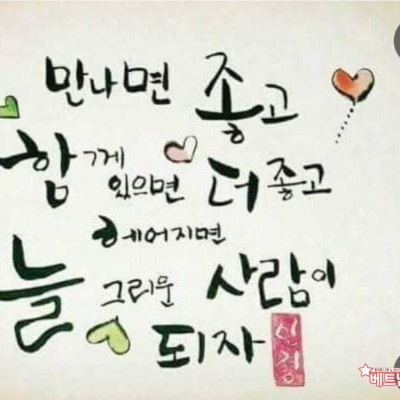 만나면 좋고
함께 있으면 더 좋고
헤어지면
늘 그리운 사람이
되자